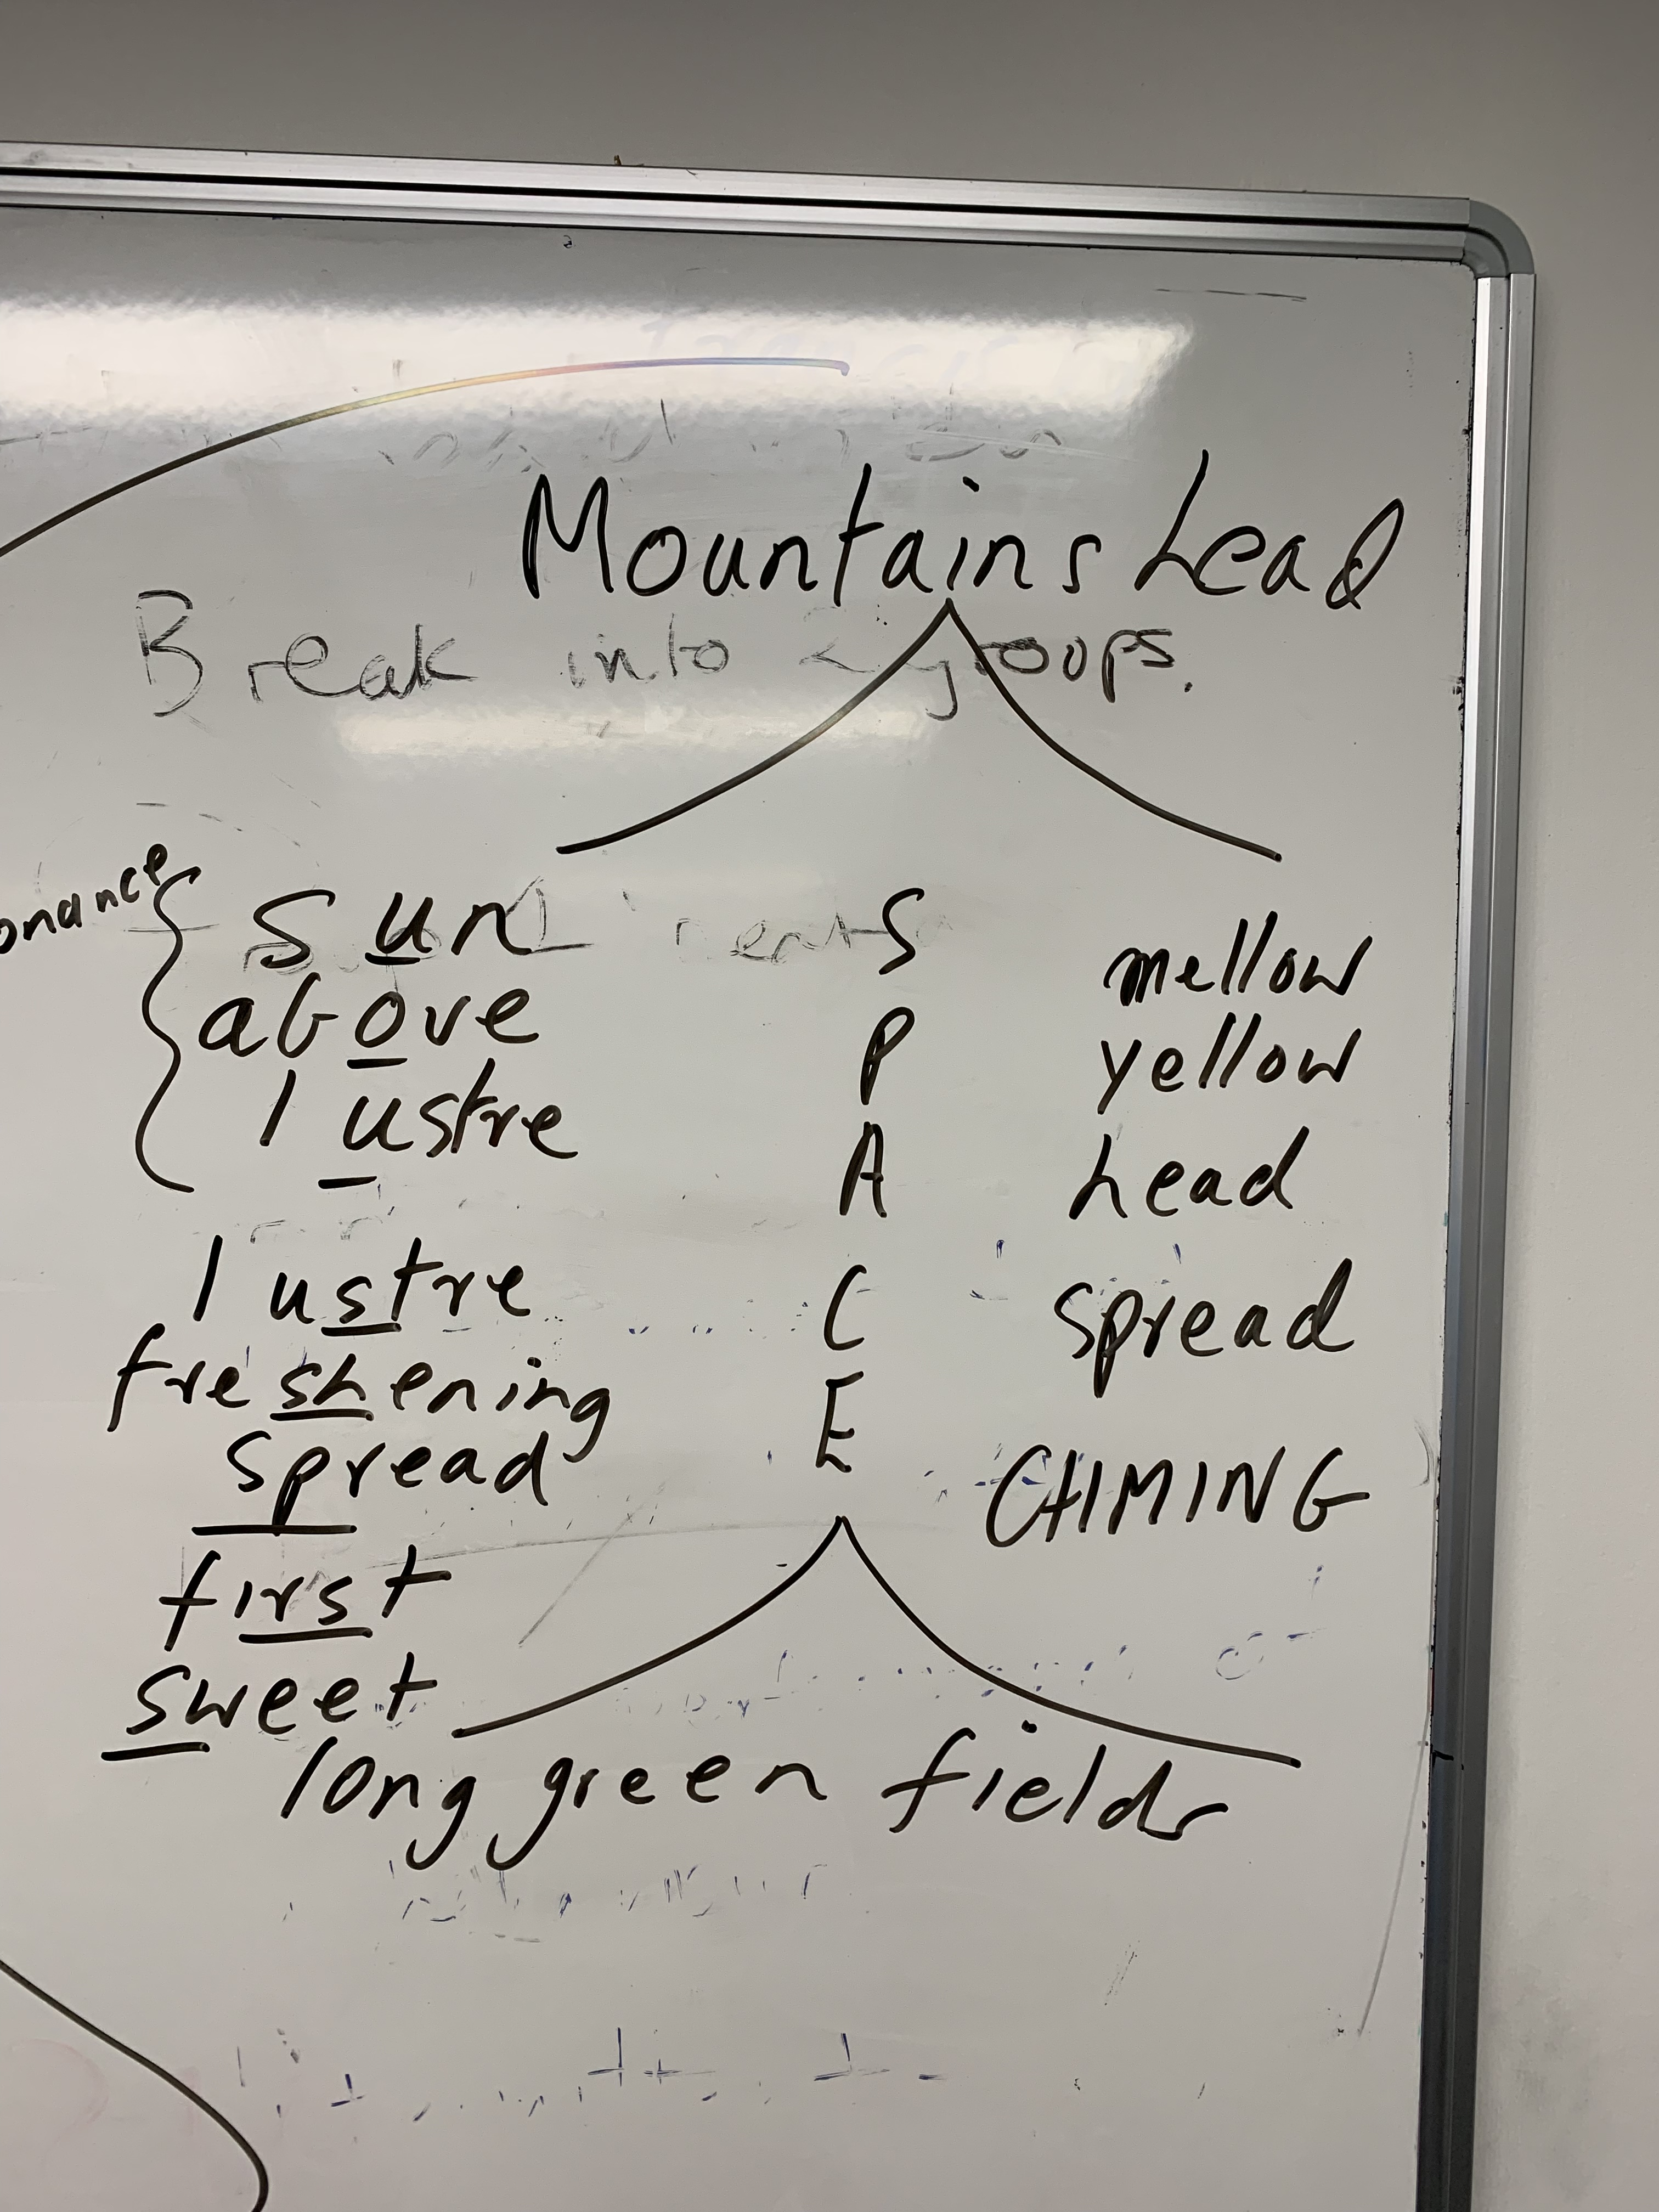 Mountains Head
Break into 2 groups.
onance
sun
above
lustre
lustre
freshening
spread
first
sweet
S
P
A
C
E
mellow
yellow
head
spread
CHIMING
long green fields